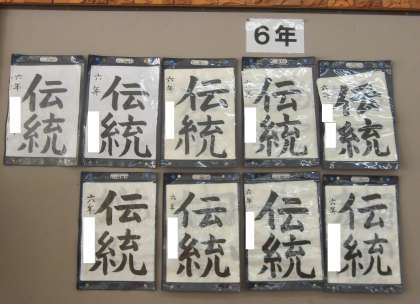 6年
六年
伝統
六年
伝統
六年
伝統
六年
伝統
六
伝統
六年
伝統
六年
伝統
六年
伝統
六年
伝統